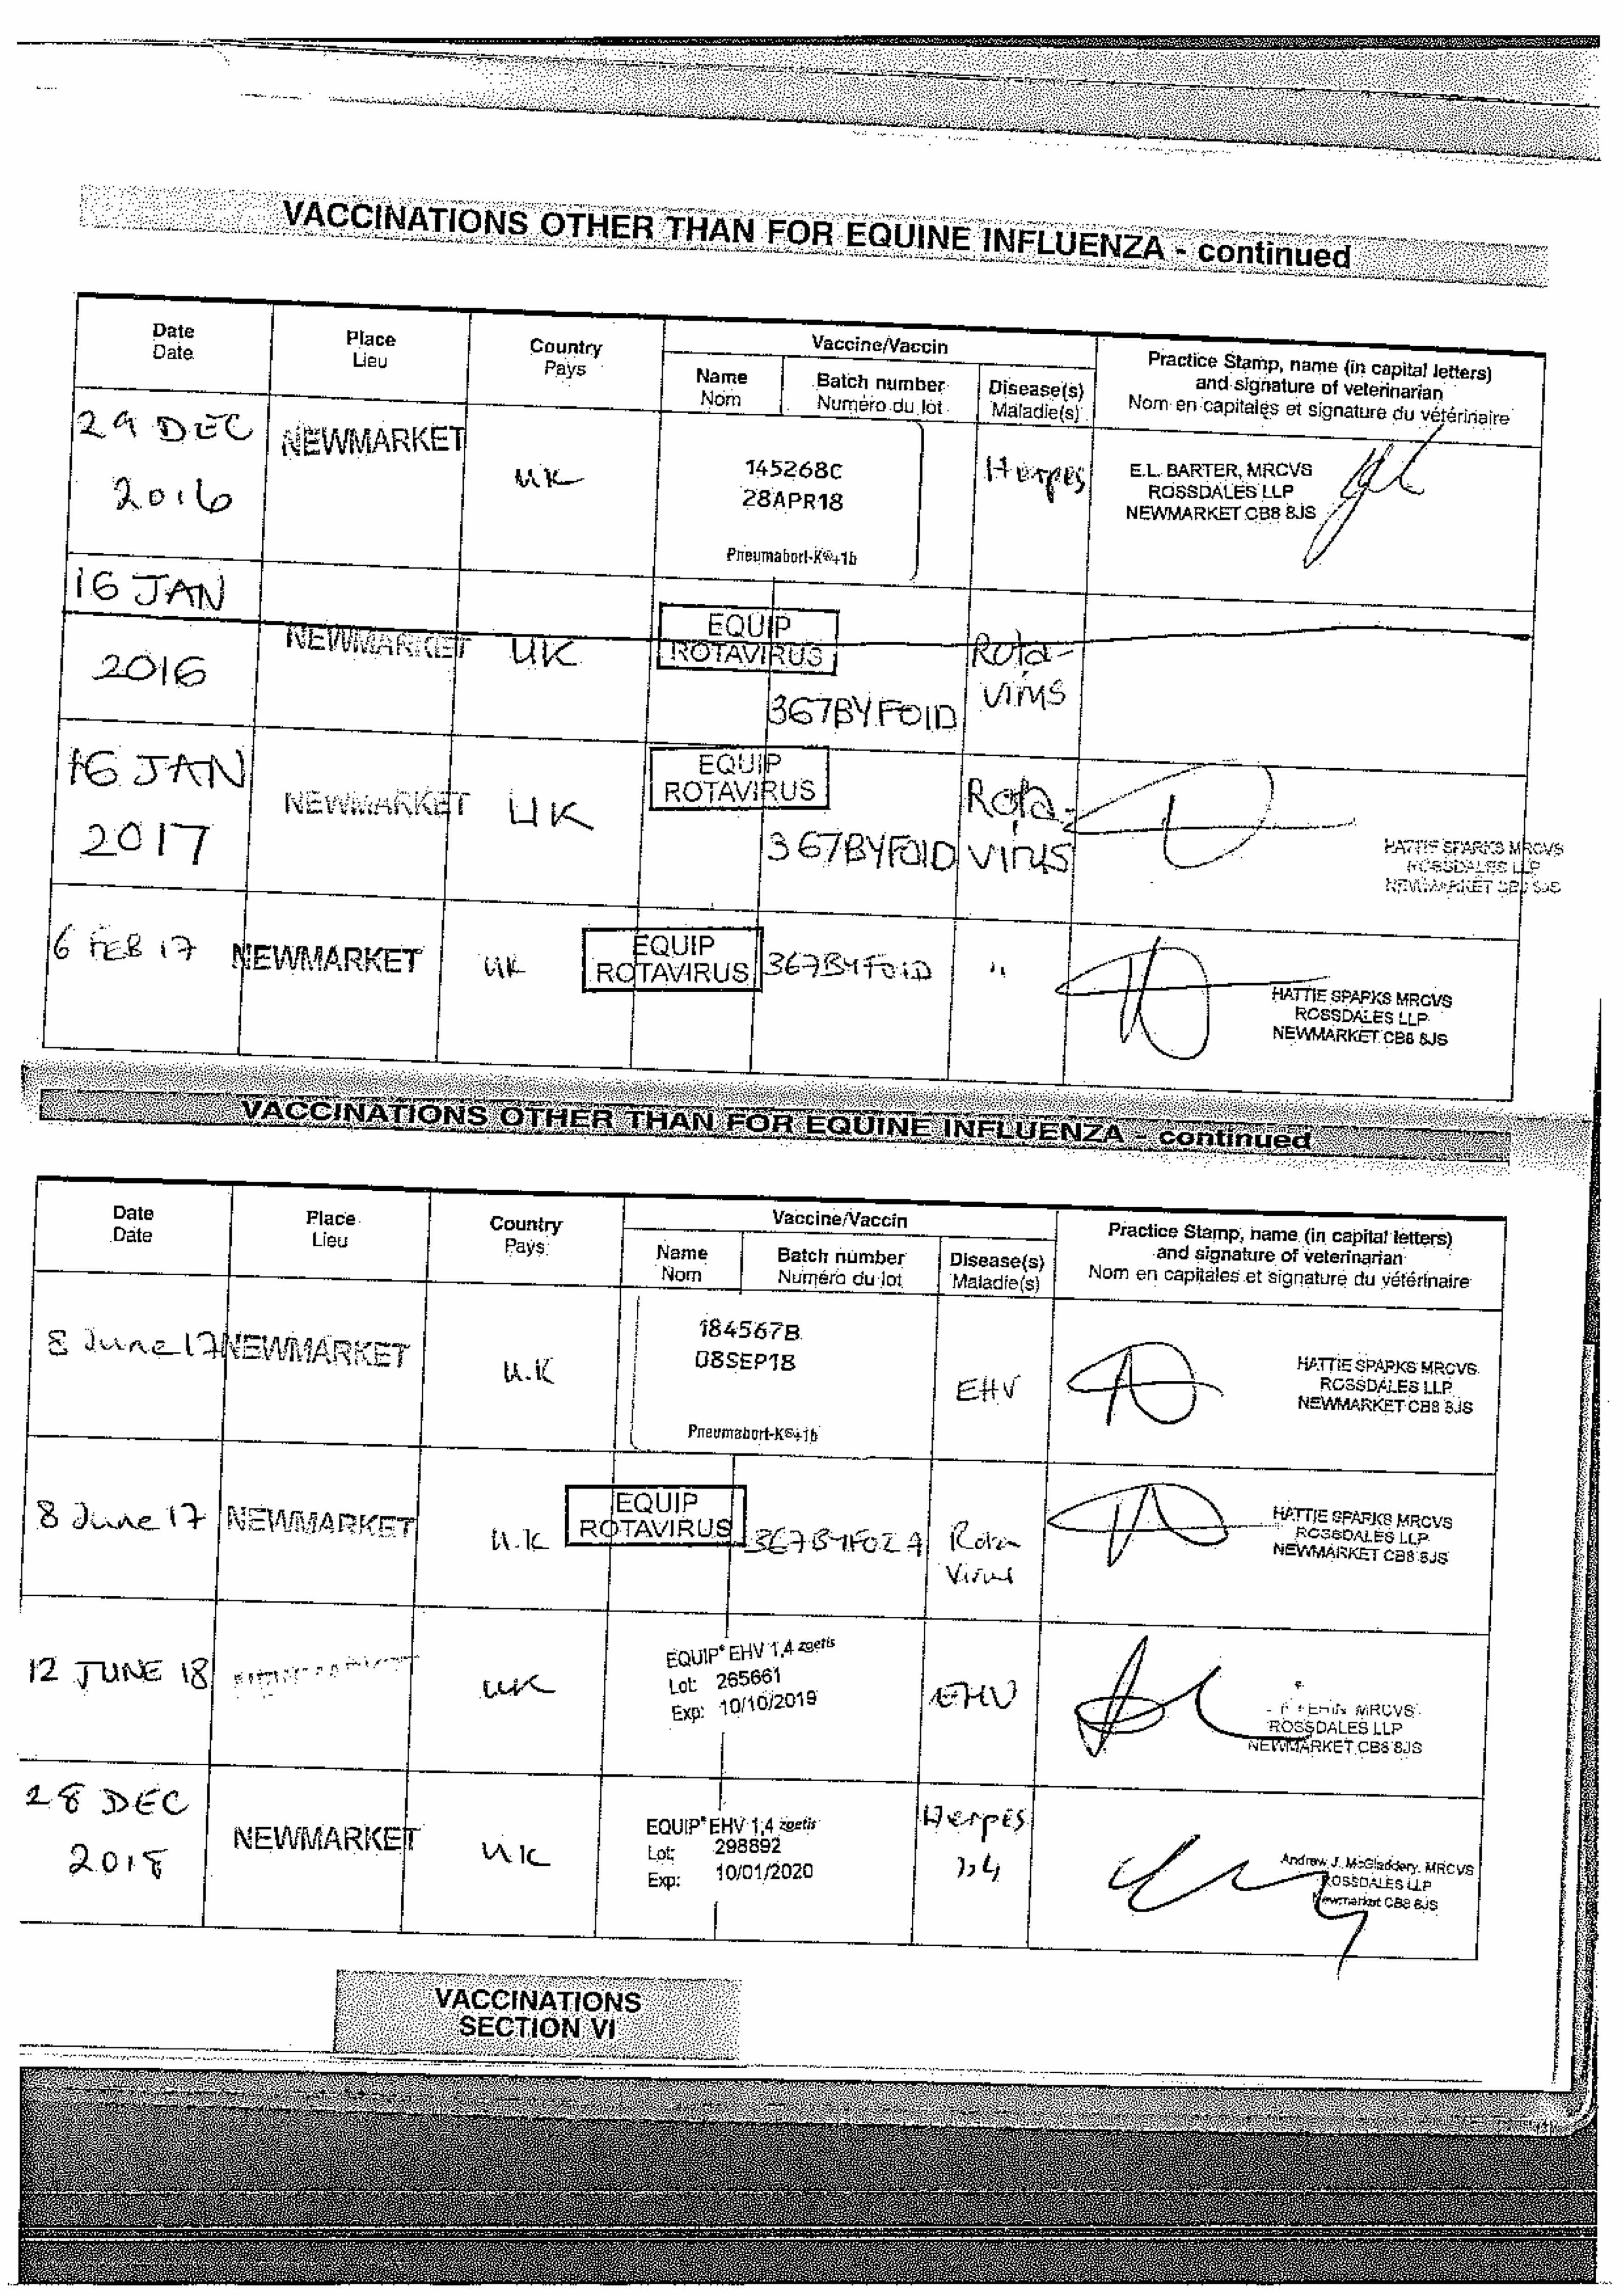 VACCINATIONS OTHER THAN FOR EQUINE INFLUENZA - continued
Date
Date
Place
Lieu
Country
Pays
Vaccine/Vaccin
Name
Nom
Batch number
Numéro du lot
Disease(s)
Maladie(s)
Practice Stamp, name (in capital letters)
and signature of veterinarian
Nom en capitales et signature du vétérinaire
29 DEC
2016
NEWMARKET
UK
145268C
28APR18
Pneumabort-K®+1b
Herpes
E.L. BARTER, MRCVS
ROSSDALES LLP
NEWMARKET CB8 8JS
16 JAN
2016
NEWMARKET
UK
EQUIP
ROTAVIRUS
367BYF01D
Rota-
virus
16 JAN
2017
NEWMARKET
UK
EQUIP
ROTAVIRUS
367BYF01D
Rota-
virus
HATTIE SPARKS MRCVS
ROSSDALES LLP
NEWMARKET CB8 8JS
6 FEB 17
NEWMARKET
UK
EQUIP
ROTAVIRUS
367BYF01D
"
HATTIE SPARKS MRCVS
ROSSDALES LLP
NEWMARKET CB8 8JS
VACCINATIONS OTHER THAN FOR EQUINE INFLUENZA - continued
Date
Date
Place
Lieu
Country
Pays
Vaccine/Vaccin
Name
Nom
Batch number
Numéro du lot
Disease(s)
Maladie(s)
Practice Stamp, name (in capital letters)
and signature of veterinarian
Nom en capitales et signature du vétérinaire
8 June 17
NEWMARKET
U.K
184567B
08SEP18
Pneumabort-K®+1b
EHV
HATTIE SPARKS MRCVS
ROSSDALES LLP
NEWMARKET CB8 8JS
8 June 17
NEWMARKET
U.K
EQUIP
ROTAVIRUS
367BYF02A
Rota
Virus
HATTIE SPARKS MRCVS
ROSSDALES LLP
NEWMARKET CB8 8JS
12 JUNE 18
NEWMARKET
UK
EQUIP® EHV 1,4 zoetis
Lot: 265661
Exp: 10/10/2019
EHV
MRCVS
ROSSDALES LLP
NEWMARKET CB8 8JS
28 DEC
2018
NEWMARKET
UK
EQUIP® EHV 1,4 zoetis
Lot: 298892
Exp: 10/01/2020
Herpes
1,4
Andrew J. McGladdery, MRCVS
ROSSDALES LLP
Newmarket CB8 8JS
VACCINATIONS
SECTION VI